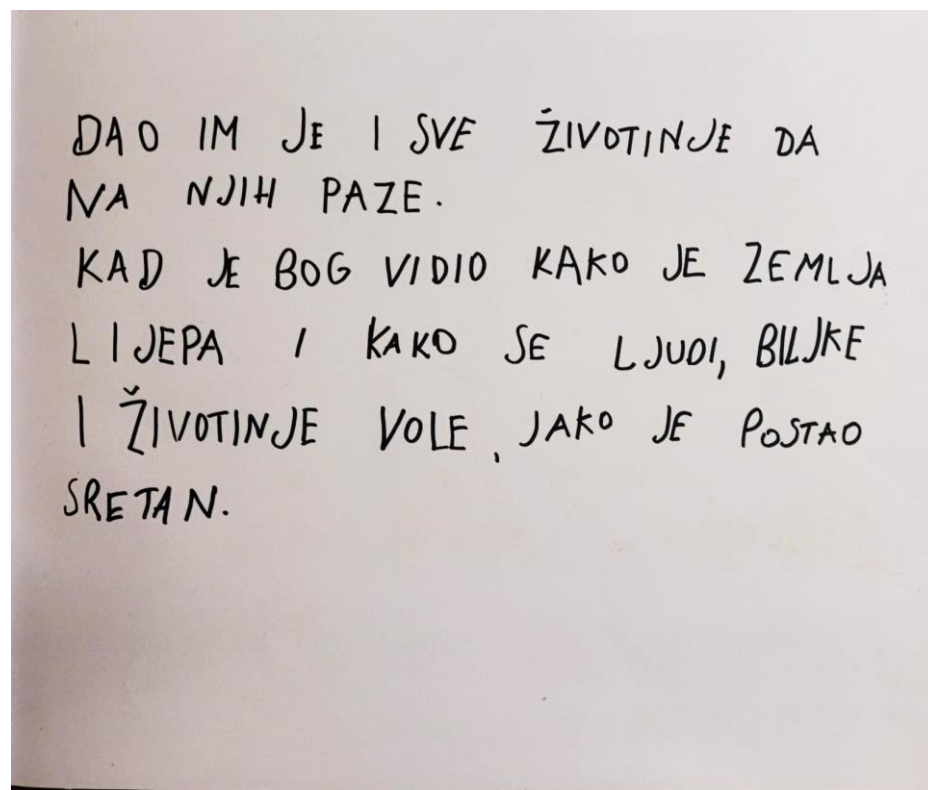 DAO IM JE I SVE ŽIVOTINJE DA
NA NJIH PAZE.
KAD JE BOG VIDIO KAKO JE ZEMLJA
LIJEPA I KAKO SE LJUDI, BILJKE
I ŽIVOTINJE VOLE, JAKO JE POSTAO
SRETAN.